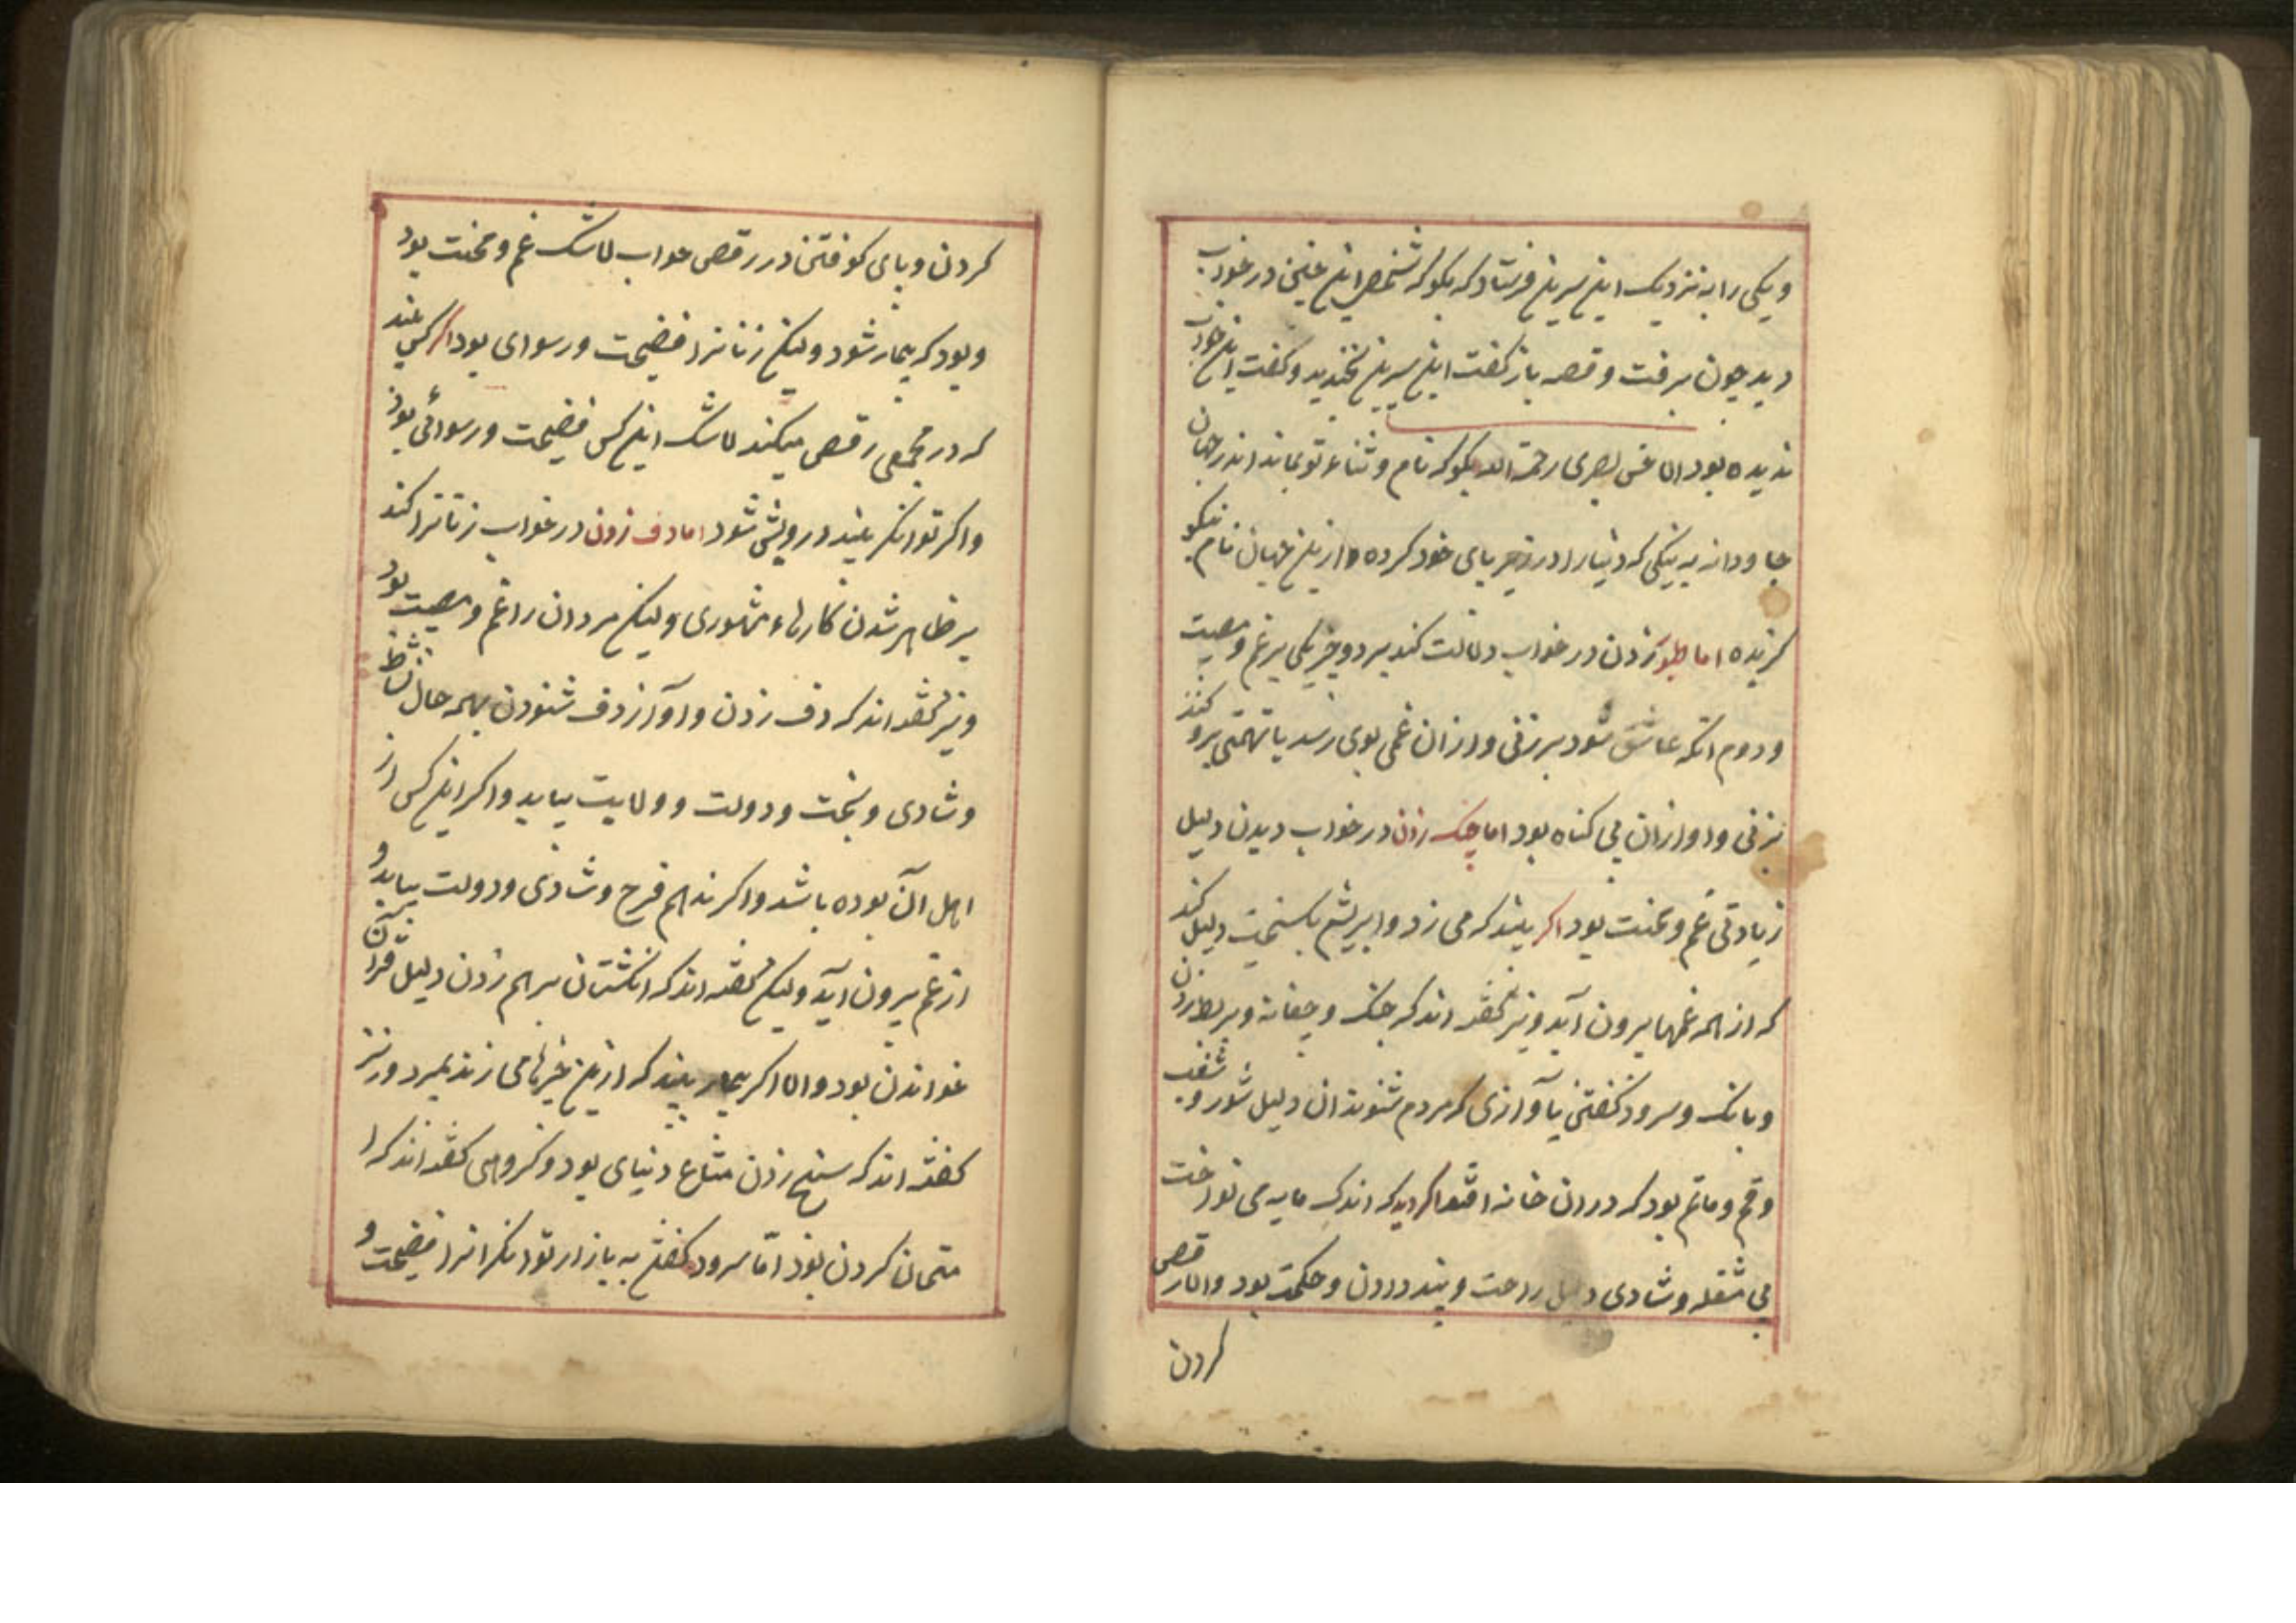 ویکی را به نزدیک ابن سیرین فرستاد که بکو که شخص این چنین در خواب
دید چون برفت و قصه باز کفت ابن سیرین بخندید و کفت این خواب
ندیده بود الا حسن بصری رحمة الله بکو که نام و ثناء تو بماند اندر جهان
جاودانه به نیکی که دنیا را در زیر پای خود کرده و ازین جهان نام نیکو
کزیده اما طنبور زدن در خواب دلالت کند بر دو چیز یکی بر غم و مصیبت
و دوم انکه عاشق شود بر زنی و از ان غمی بوی رسد یا تهمتی برو کنند
بزنی و او از ان بی کناه بود اما چنک زدن در خواب دیدن دلیل
زیادتی غم و محنت بود اکر بیند که می زد و ابریشم بکسیخت دلیل کند
که از همه غمها بیرون آید و نیز کفته اند که چنک و چغانه و بربط زدن
و بانک و سرود کفتن بآوازی که مردم شنوند ان دلیل شور و شغب
و غم و ماتم بود که در ان خانه افتد اکر دید که اندک مایه می نواخت
بی مشغله و شادی دلیل راحت و پند دادن و حکمت بود و اما رقص
کردن
کردن و پای کوفتن در رقص خواب بی شک غم و محنت بود
و بود که بیمار شود ولیکن زنانرا فضیحت و رسوای بود اکر کسی بیند
که در مجمعی رقص میکند بی شک این کس فضیحت و رسوائی بود
و اکر توانکر بیند درویش شود اما دف زدن در خواب زنانرا کند
بر ظاهر شدن کارهاء مشهوری ولیکن مردان را غم و مصیبت بود
و نیز کفته اند که دف زدن و آواز دف شنودن بهمه حال نشاط
و شادی و بخت و دولت و ولایت بیابد و اکر این کس از
اهل آن بوده باشد و اکر نه هم فرح و شادی و دولت بیابد و
از غم بیرون آید ولیکن کفته اند که انکشتان بر هم زدن دلیل قرآن
خواندن بود و اما اکر بیمار بیند که ازین چیزها می زند بمیرد و نیز
کفته اند که سنج زدن متاع دنیای بود و کروهی کفته اند که
کردن بود اما سرود کفتن به بازار توانکرانرا فضیحت و